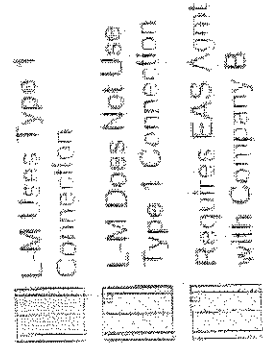 L-M Uses Type 1
Connection
L-M Does Not Use
Type 1 Connection
Requires EAS Agmt
with Company B